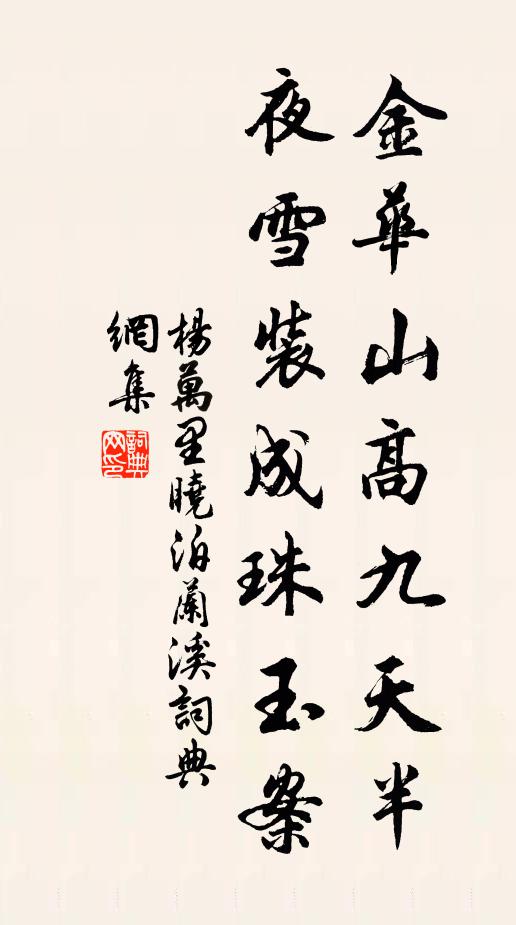 金華山高九天半
夜雪裝成珠玉案
楊萬里曉泊蘭溪詞典
網集
詞典網印